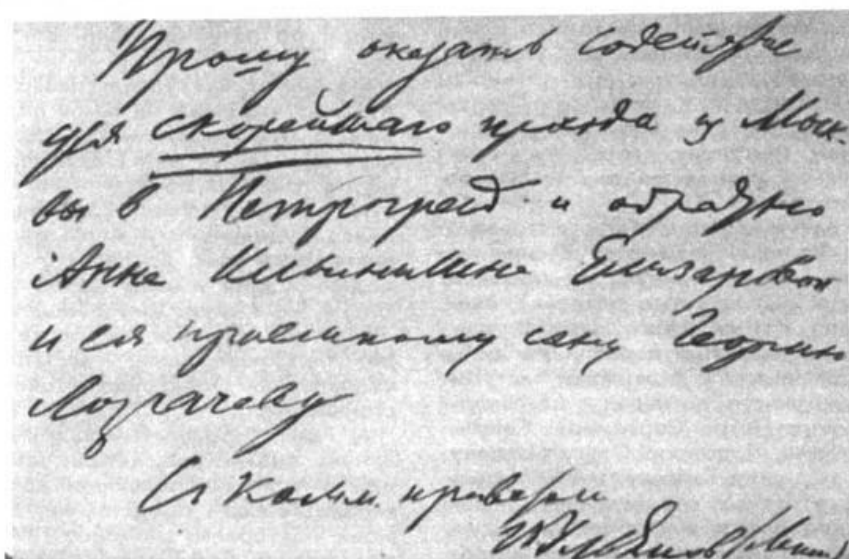 Прошу оказать содействие
для скорейшаго проезда из Моск-
вы в Петроград и обратно
Анне Ильинишне Елизаровой
и ея приемному сыну Георгию
Лозгачеву
С комм. приветом
В Ульянов (Ленин)